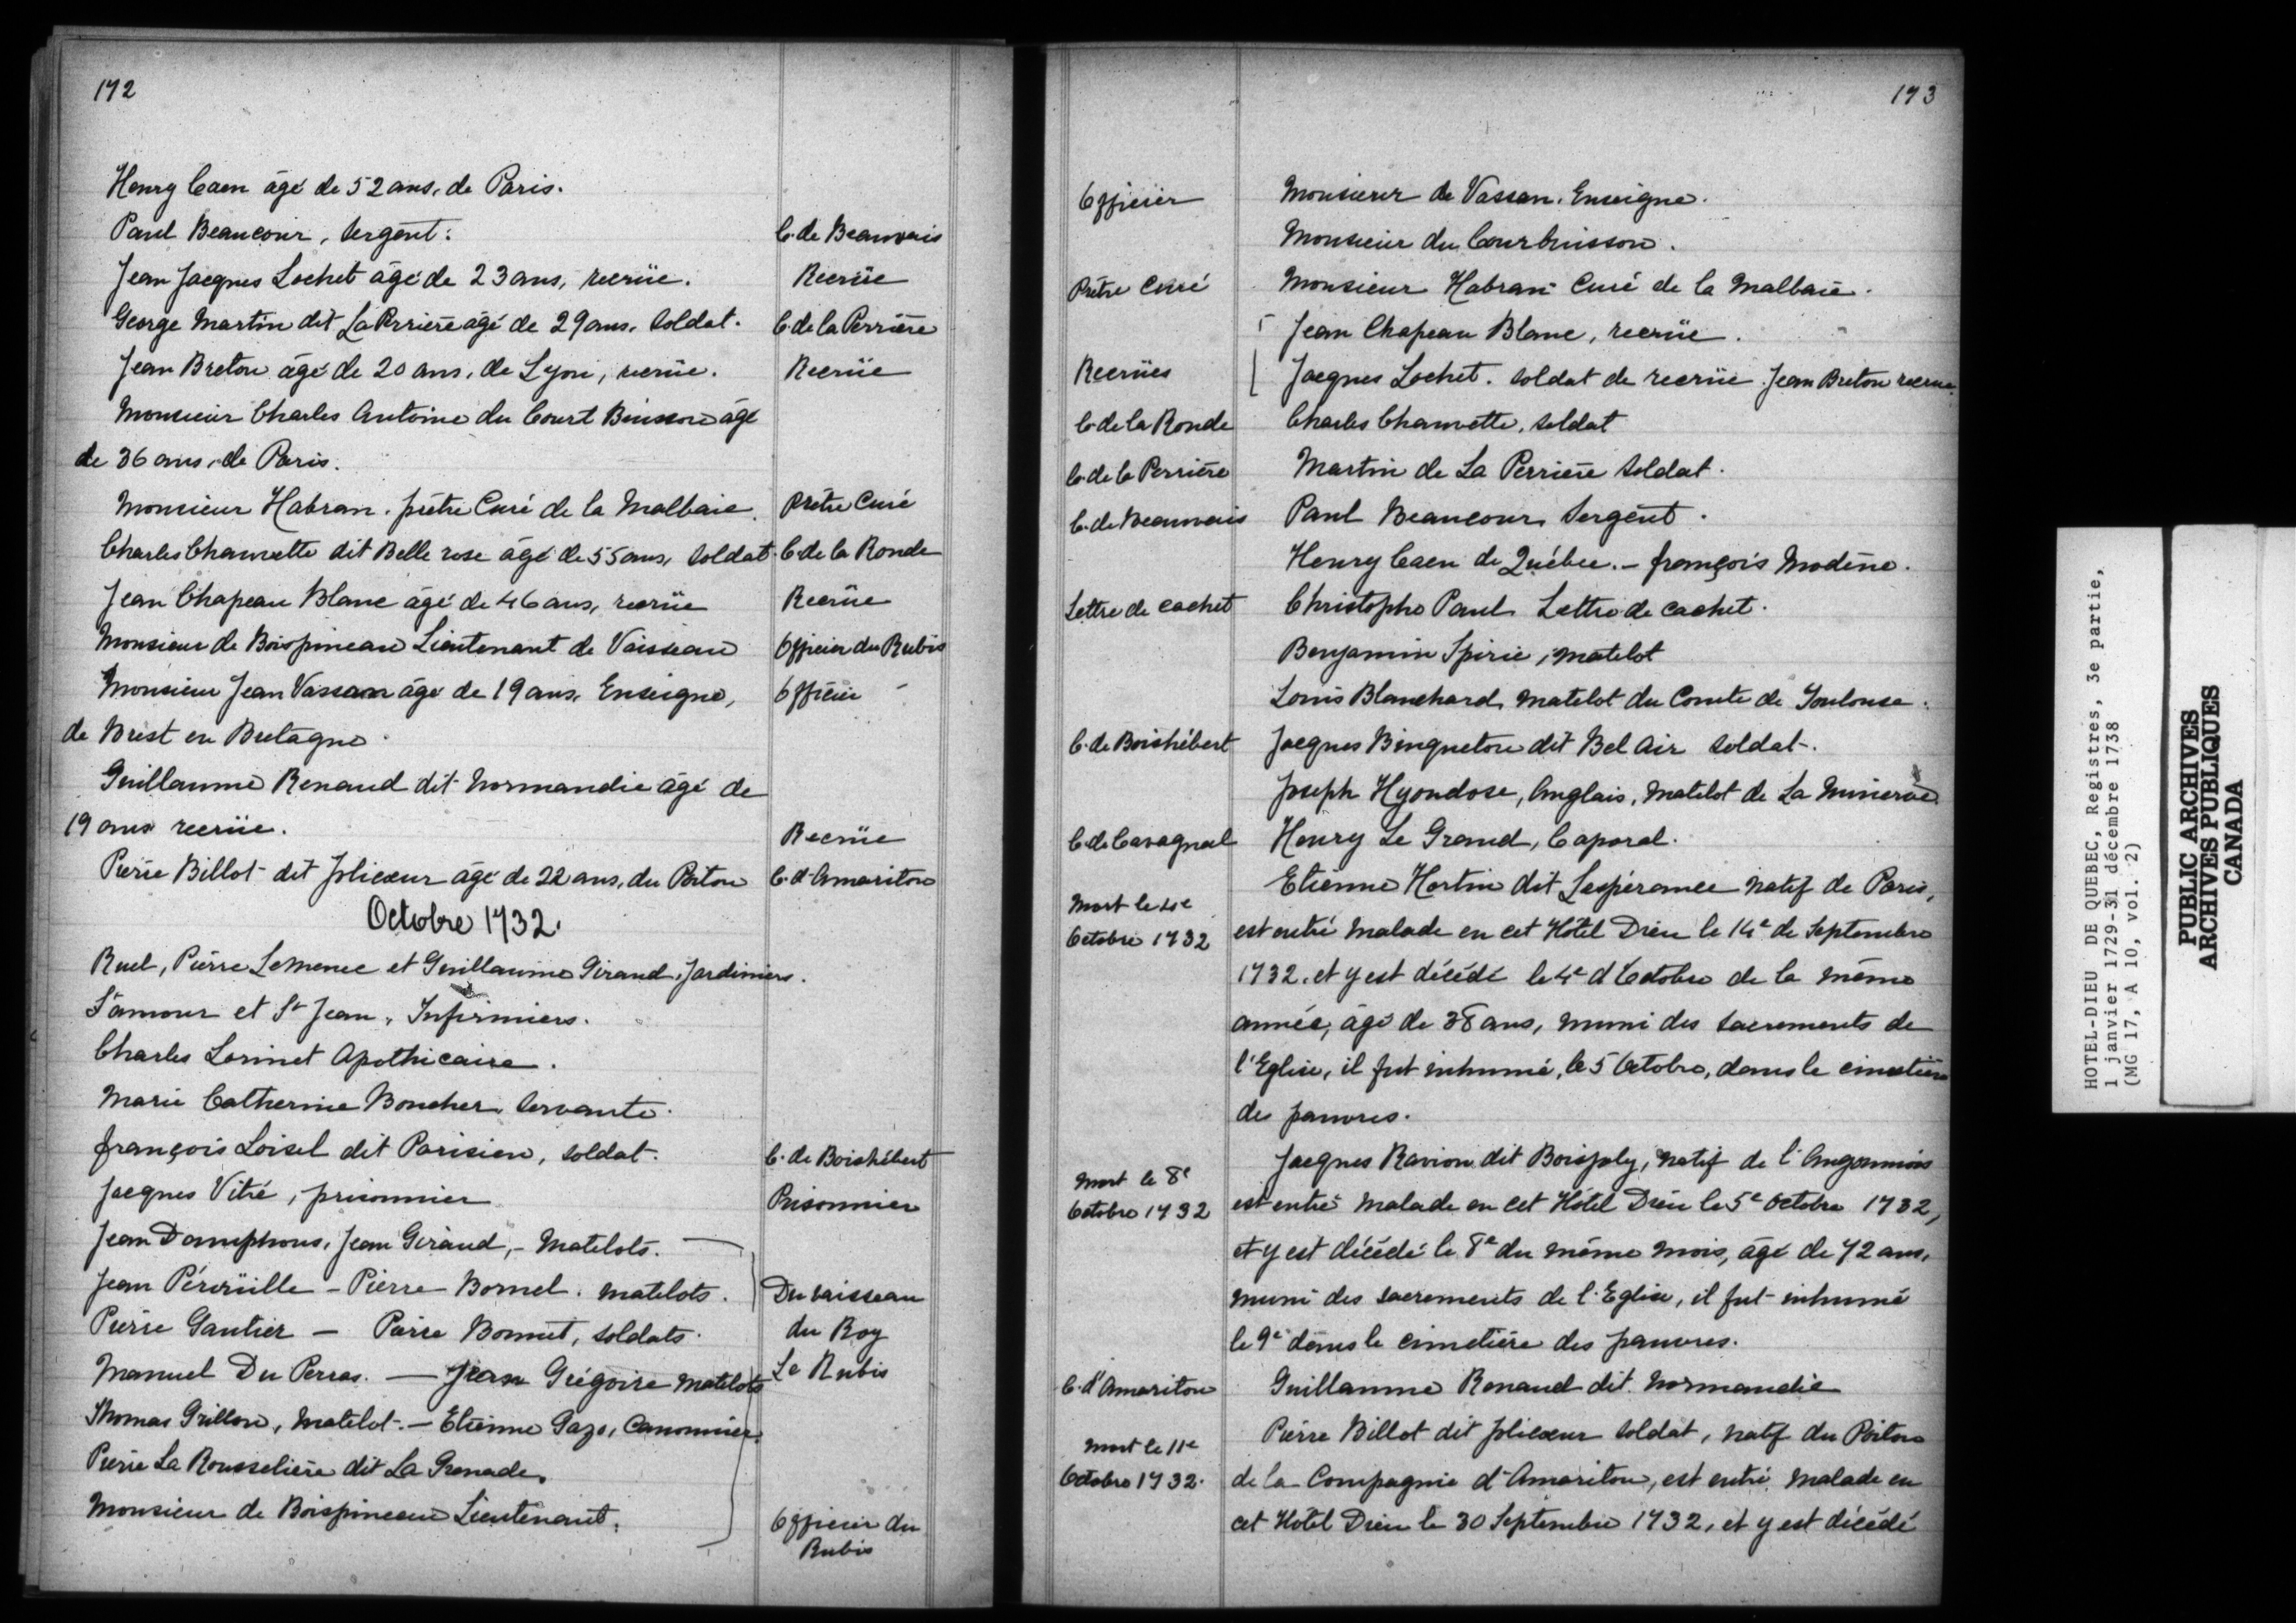 172
Henry Caen âgé de 52 ans, de Paris.
Paul Beaucour, sergent. C. de Beauvais
Jean Jacques Lochet âgé de 23 ans, recrüe. Recrüe
George Martin dit La Perrière âgé de 29 ans, soldat. C. de la Perrière
Jean Breton âgé de 20 ans, de Lyon, recrüe. Recrüe
Monsieur Charles Antoine du Court Buisson âgé
de 36 ans, de Paris.
Monsieur Habran, prêtre Curé de la Malbaie. Prêtre Curé
Charles Chauvette dit Belle rose âgé de 55 ans, soldat. C. de la Ronde
Jean Chapeau Blanc âgé de 46 ans, recrüe Recrüe
Monsieur de Boispineau Lieutenant de Vaisseau Officier du Rubis
Monsieur Jean Vassan âgé de 19 ans, Enseigne, Officier
de Brest en Bretagne.
Guillaume Renaud dit Normandie âgé de
19 ans recrüe. Recrüe
Pierre Billot dit Jolicoeur âgé de 22 ans, du Poitou C. d'Amariton
Octobre 1732.
Ruel, Pierre Lemenec et Guillaume Giraud, Jardiniers.
S'amour et St Jean, Infirmiers.
Charles Lorinet Apothicaire.
Marie Catherine Boucher, servante.
François Loisel dit Parisien, soldat. C. de Boishébert
Jacques Vitré, prisonnier Prisonnier
Jean Damphous, Jean Geraud, - Matelots.
Jean Péroüille - Pierre Bomel. matelots. Du vaisseau
Pierre Gautier - Pierre Bonnet, soldats. du Roy
Manuel Du Perras. - Jean Grégoire matelots Le Rubis
Thomas Grillon, matelot. - Etienne Gazo, Canonnier.
Pierre La Rousselière dit La Grenade.
Monsieur de Boispineau Lieutenant. Officier du
Rubis
173
Officier Monsieur de Vassan, Enseigne.
Monsieur du Courbuisson.
Prêtre Curé Monsieur Habran Curé de la Malbaie.
Jean Chapeau Blanc, recrüe.
Recrües Jacques Lochet, soldat de recrüe. Jean Breton recrue.
C. de la Ronde Charles Chauvette, soldat
C. de la Perrière Martin de La Perrière soldat.
C. de Beauvais Paul Beaucour, sergent.
Henry Caen de Québec. - françois Modène.
Lettre de cachet Christophe Paul, Lettre de cachet.
Benjamin Spirie, matelot
Louis Blanchard, matelot du Comte de Toulouse.
C. de Boishébert Jacques Binqueton dit Bel Air soldat.
Joseph Hyondose, Anglais, matelot de La Minerve.
C. de Cavagnal Henry Le Grand, Caporal.
Etienne Hortin dit Lespérance natif de Paris,
Mort le 4e
Octobre 1732 est entré malade en cet Hôtel Dieu le 14e de Septembre
1732, et y est décédé le 4e d'Octobre de la même
année, âgé de 38 ans, muni des sacrements de
l'Eglise, il fut inhumé, le 5 Octobre, dans le cimetière
des pauvres.
Jacques Ravion dit Boisjoly, natif de l'Angoumois
Mort le 8e
Octobre 1732 est entré malade en cet Hôtel Dieu le 5e Octobre 1732,
et y est décédé le 8e du même mois, âgé de 72 ans,
muni des sacrements de l'Eglise, il fut inhumé
le 9e dans le cimetière des pauvres.
C. d'Amariton Guillaume Renaud dit Normandie
Pierre Billot dit Jolicoeur soldat, natif du Poitou
Mort le 11e
Octobre 1732. de la Compagnie d'Amariton, est entré malade en
cet Hôtel Dieu le 30 Septembre 1732, et y est décédé
HOTEL-DIEU DE QUEBEC, Registres, 3e partie,
1 janvier 1729-31 décembre 1738
(MG 17, A 10, vol. 2)
PUBLIC ARCHIVES
ARCHIVES PUBLIQUES
CANADA